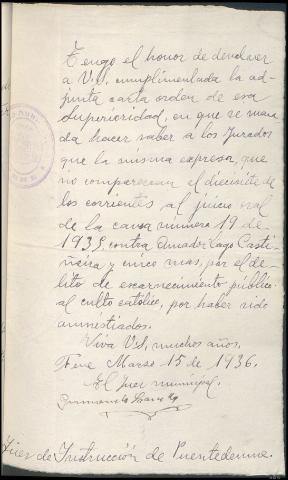 Tengo el honor de devolver
a V.S. cumplimentada la ad-
junta carta orden de esa
Superioridad, en que se man
da hacer saber a los Jurados
que la misma expresa, que
no comparezcan el diecisiete de
los corrientes al juicio oral
de la causa número 19 de
1935, contra Amador Lago Casti-
ñeira y cinco mas, por el de-
lito de escarnecimiento público
al culto católico, por haber sido
amnistiados.
Viva V.S. muchos años.
Fene Marzo 15 de 1936.
El Juez municipal,
Juez de Instrucción de Puentedeume.